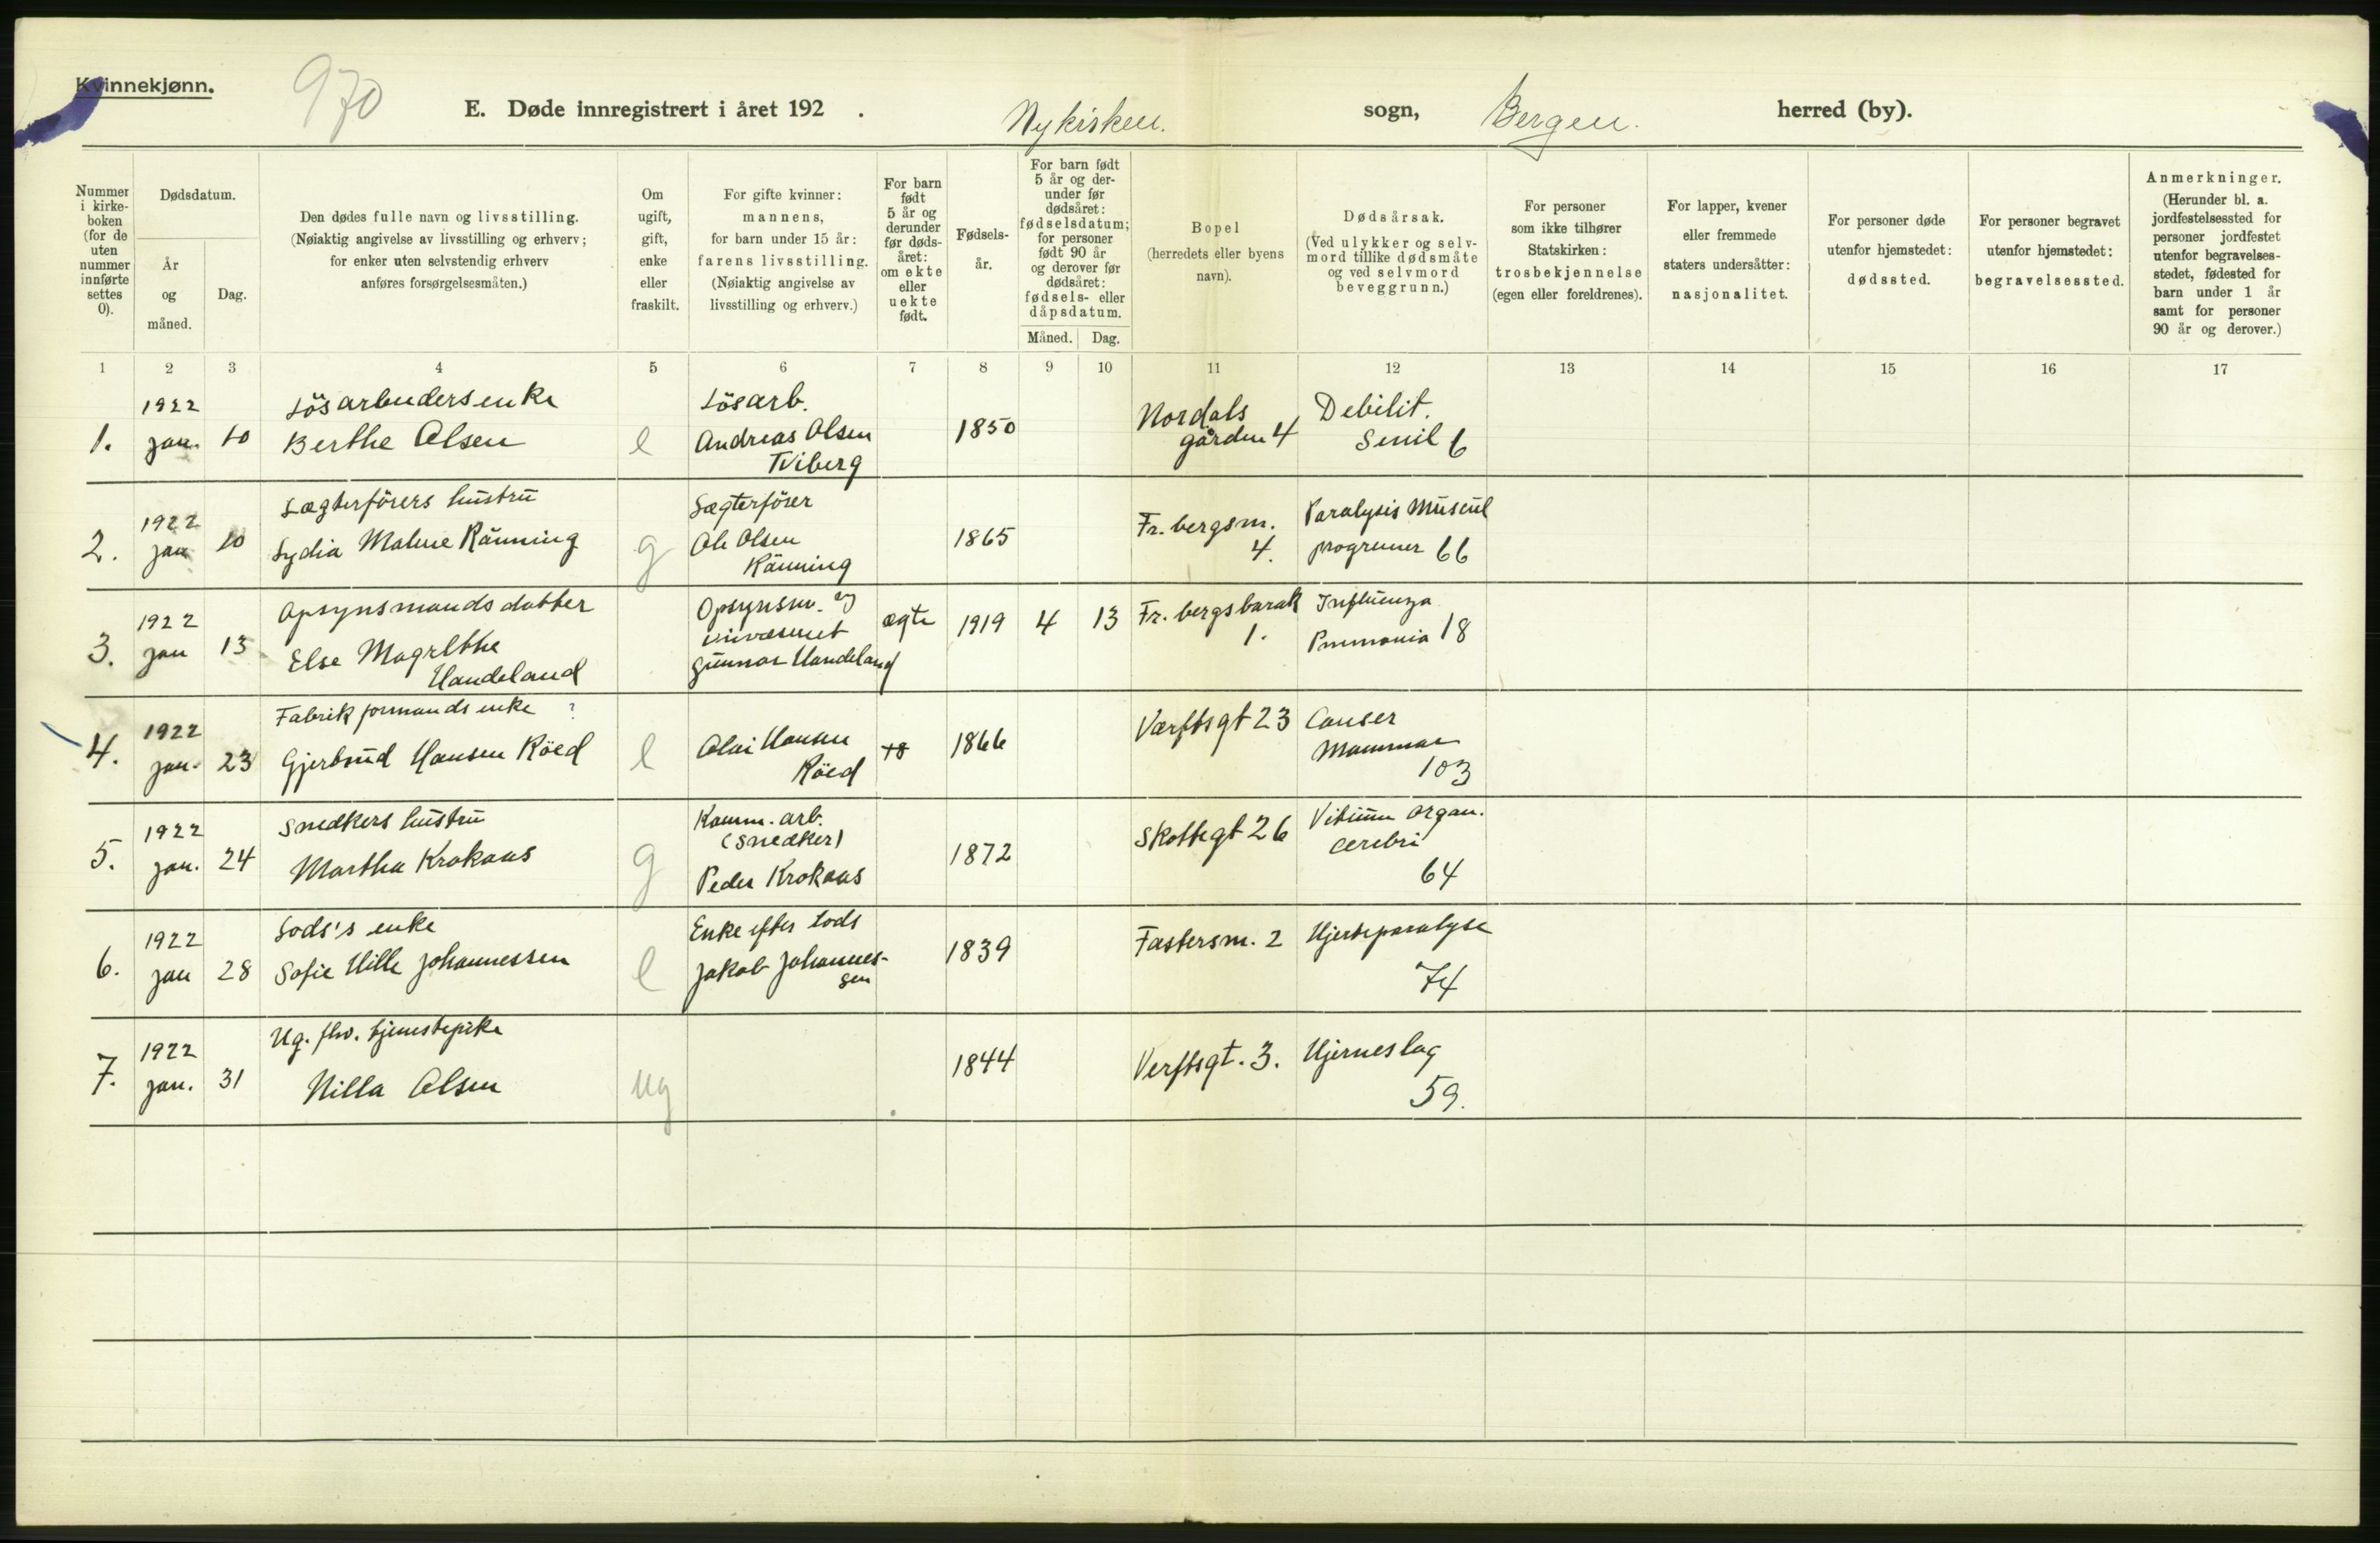 Kvinnekjønn.
970
E. Døde innregistrert i året 192 .
Nykirken.
sogn,
Bergen.
herred (by).
Nummer i kirke-boken (for de uten nummer innførte settes 0).
Dødsdatum.
År og måned.
Dag.
Den dødes fulle navn og livsstilling.
(Nøiaktig angivelse av livsstilling og erhverv;
for enker uten selvstendig erhverv
anføres forsørgelsesmåten.)
Om ugift, gift, enke eller fraskilt.
For gifte kvinner:
mannens,
for barn under 15 år:
farens livsstilling.
(Nøiaktig angivelse av
livsstilling og erhverv.)
For barn født 5 år og derunder før døds-året: om ekte eller uekte født.
Fødsels-
år.
For barn født 5 år og der-under før dødsåret: fødselsdatum; for personer født 90 år og derover før dødsåret: fødsels- eller dåpsdatum.
Måned. Dag.
Bopel
(herredets eller byens
navn).
Dødsårsak.
(Ved ulykker og selv-
mord tillike dødsmåte
og ved selvmord
beveggrunn.)
For personer
som ikke tilhører
Statskirken:
trosbekjennelse
(egen eller foreldrenes).
For lapper, kvener
eller fremmede
staters undersåtter:
nasjonalitet.
For personer døde
utenfor hjemstedet:
dødssted.
For personer begravet
utenfor hjemstedet:
begravelsessted.
Anmerkninger.
(Herunder bl. a.
jordfestelsessted for
personer jordfestet
utenfor begravelses-
stedet, fødested for
barn under 1 år
samt for personer
90 år og derover.)
1 2 3 4 5 6 7 8 9 10 11 12 13 14 15 16 17
1922 Lösarbeidersenke Lösarb. Nordals Debilit.
1. jan. 10 Berthe Olsen e Andreas Olsen 1850 gården 4 Senil 6
Tviberg
Lægterförers hustru Lægterförer
1922 Fr. bergsm. Paralysis Muscul
2. jan 10 Sydia Malene Ränning g Ole Olsen 1865 4. progr 66
Ränning
1922 Opsynsmands datter Opsynsm. ægte 1919 4 13 Fr. bergsbarak Influenza
3. jan 13 Else Magrethe 1. Pnemonia 18
Handeland Gunnar Handeland
1922 Fabrikformands enke ? Værftsgt 23 Canser
4. jan. 23 Gjertrud Hansen Röed e Olai Hansen 1866 Mammae
Röed 103
1922 Snedkers hustru Komm. arb. Vitium organ.
(Snedker) Skottegt 26 cerebri
5. jan. 24 Martha Krokaas g Peder Krokaas 1872 64
1922 Lods's enke Enke efter Lods
6. jan 28 Sofie Hille Johannessen e Jakob Johannes- 1839 Fastersm. 2 Hjerteparalyse
sen 74
1922 Ug. fhv. tjenestepike
7. jan. 31 Nilla Olsen ug 1844 Verftsgt. 3. Hjerneslag
59.